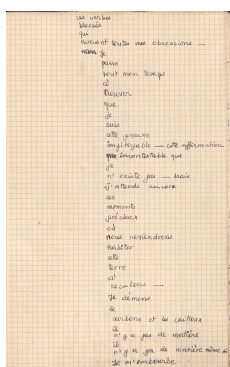 ces verbes
blessés
qui
avouent toutes mes obsessions —
je
passe
tout mon temps
à
trouver
que
je
suis
cette preuve
impitoyable — cette affirmation
incontestable que
je
n'existe pas — Mais
j'attends encore
ces
moments
précieux
où
nous reviendrons
habiter
cette
terre
à
reculons —
Je démens
le
carbone et les cailloux
il
n'y a pas de matière
il
n'y a pas de matière même si
je m'embourbe